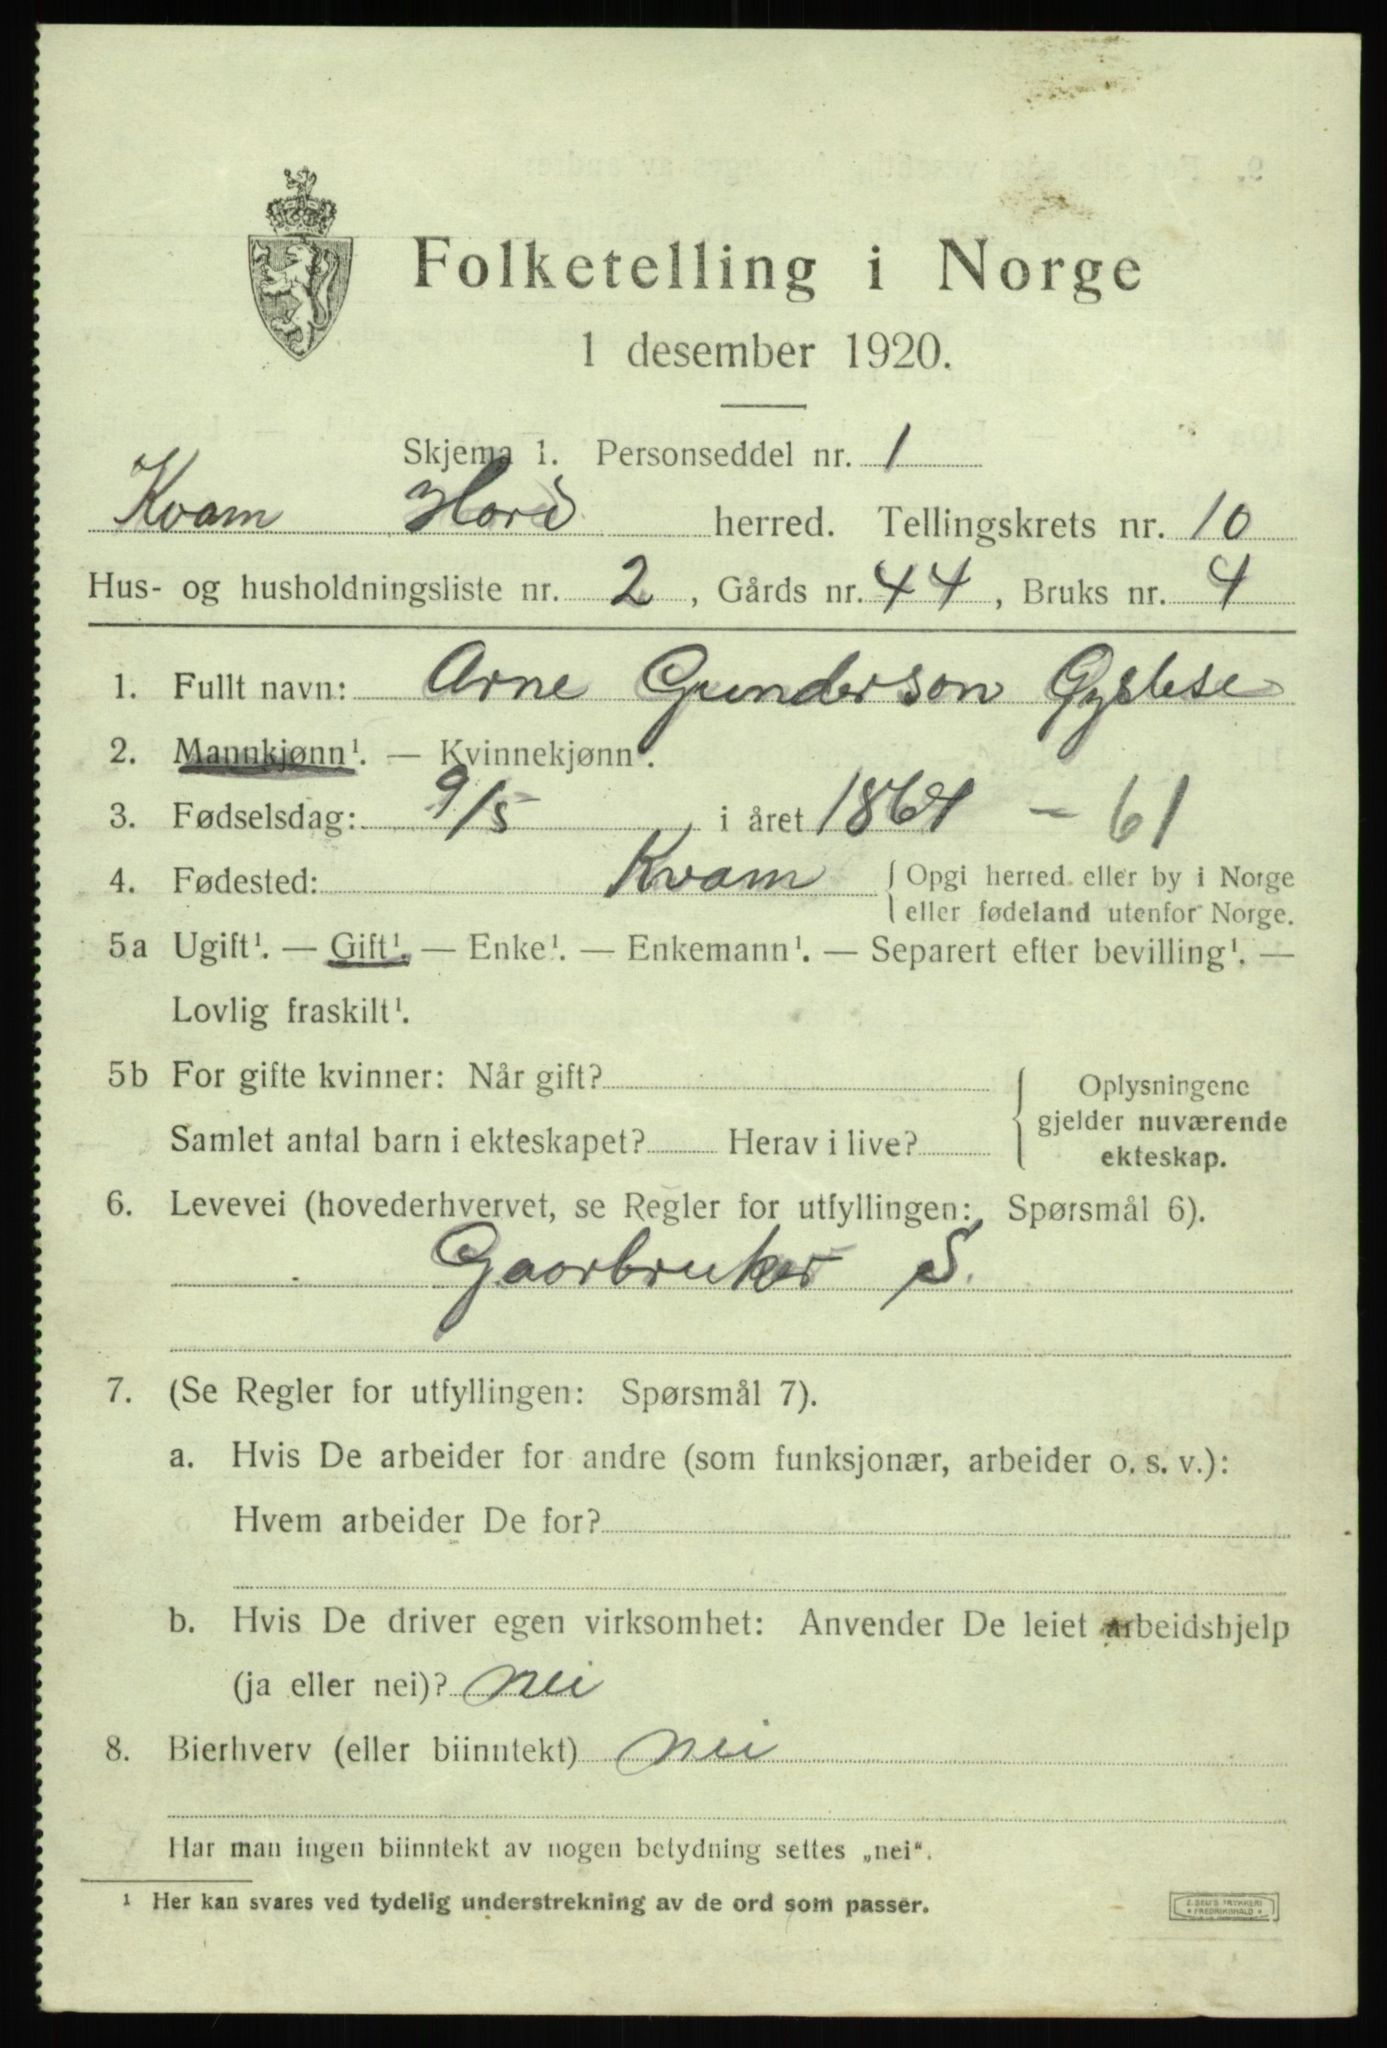 Folketelling i Norge
1 desember 1920.
Skjema 1. Personseddel nr. 1
Kvam Hord herred. Tellingskrets nr. 10
Hus- og husholdningsliste nr. 2, Gårds nr. 44, Bruks nr. 4
1. Fullt navn: Arne Gunderson
2. Mannkjønn¹. — Kvinnekjønn¹.
3. Fødselsdag: 9/5 i året 1861 — 61
4. Fødested: Kvam { Opgi herred eller by i Norge
eller fødeland utenfor Norge.
5a Ugift¹. — Gift¹. — Enke¹. — Enkemann¹. — Separert efter bevilling¹. —
Lovlig fraskilt¹.
5b For gifte kvinner: Når gift?
Samlet antal barn i ekteskapet? Herav i live?
Oplysningene
gjelder nuværende
ekteskap.
6. Levevei (hovederhvervet, se Regler for utfyllingen: Spørsmål 6).
Gaarbruker S.
7. (Se Regler for utfyllingen: Spørsmål 7).
a. Hvis De arbeider for andre (som funksjonær, arbeider o. s. v.):
Hvem arbeider De for?
b. Hvis De driver egen virksomhet: Anvender De leiet arbeidshjelp
(ja eller nei)? nei
8. Bierhverv (eller biinntekt) nei
Har man ingen biinntekt av nogen betydning settes „nei“.
¹ Her kan svares ved tydelig understrekning av de ord som passer.